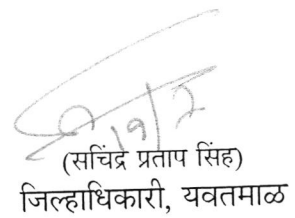 19/2
(सचिंद्र प्रताप सिंह)
जिल्हाधिकारी, यवतमाळ